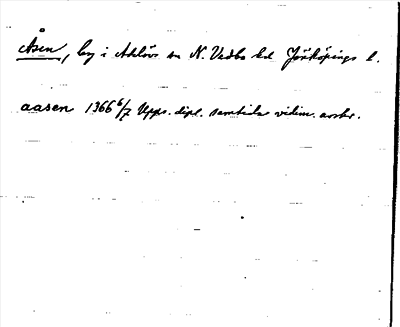 Åsen, by i Adelövs sn N. Vedbo hd Jönköpings l.
aasen 1366 6/7 Upps. dipl. samtida vidim. avskr.